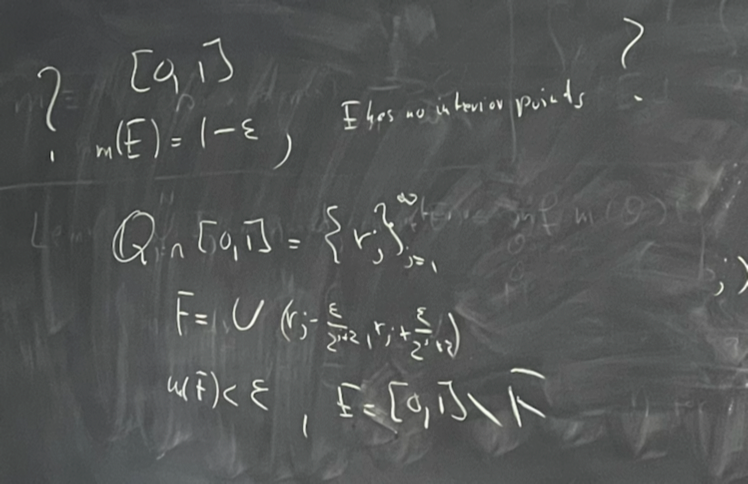 ? [0,1] ?
m(E) = 1-ε, E has no interior points
Q in [0,1] = {r_j}_{j=1}^∞
F = ∪ (r_j - ε/2^{j+2}, r_j + ε/2^{j+2})
m(F) < ε, E = [0,1] \ F